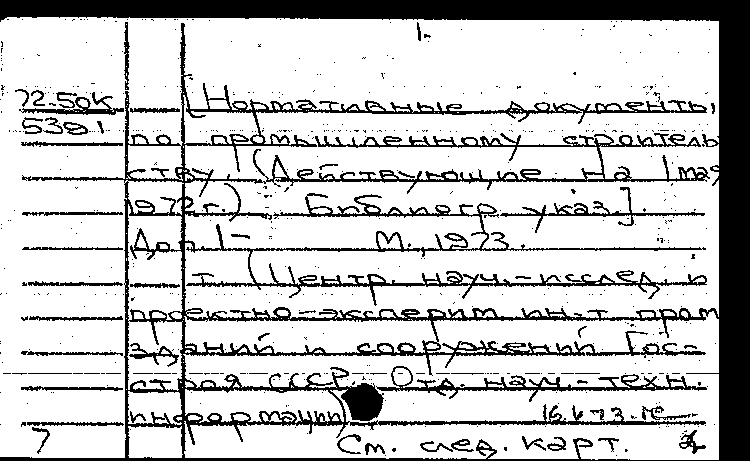 1.
72.50к [Нормативные документы
5391 по промышленному строитель
ству. (Действующие на 1 мая
1972 г.) Библиогр. указ.].
Доп. 1- М., 1973.
т. (Центр. науч.-исслед. и
проектно-эксперим ин-т пром
зданий и сооружений Гос-
строя СССР. Отд. науч.-техн.
информации)
См. след. карт.
7